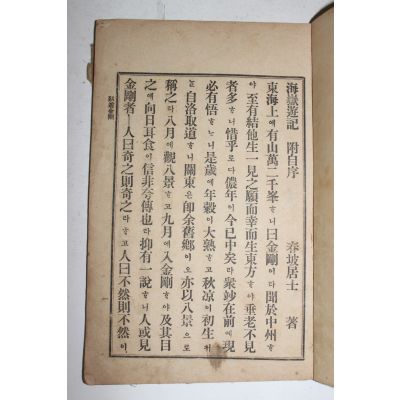 海嶽遊記 附自序
春坡居士 著
東海上에有山萬二千峯ᄒᆞ니曰金剛이다聞於中州ᄒᆞ
야至有結他生一見之願而幸而生東方ᄒᆞ야垂老不見
者多ᄒᆞ니惜乎로다儂年이今已中矣라衆鈔在前에現
必有悟ᄒᆞ느니是歲에年穀이大熟ᄒᆞ고秋凉이初生커
늘自洛取道ᄒᆞ니關東은卽余舊鄕이오亦以八景으로
稱之라八月에觀八景ᄒᆞ고九月에入金剛ᄒᆞ야及其目
之에向日耳食이信非夸傳也라抑有一說ᄒᆞ니人或見
金剛者ㅣ人曰奇之則奇之라ᄒᆞ고人曰不然則不然이